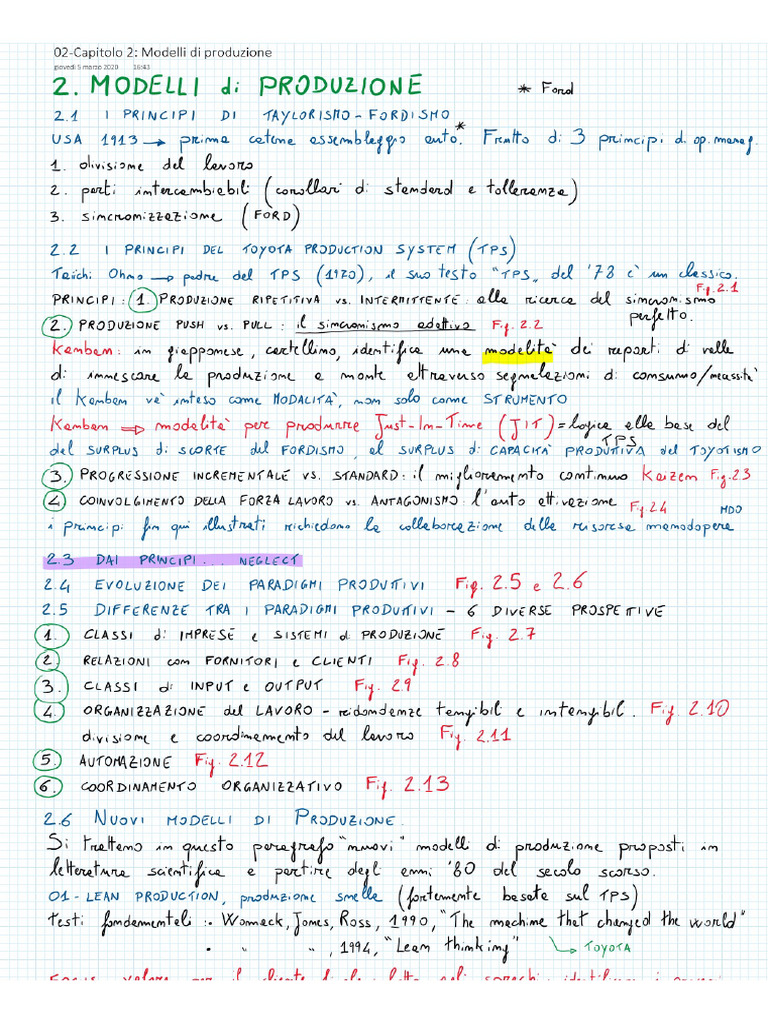 02-Capitolo 2: Modelli di produzione
giovedì 5 marzo 2020 16:43
2. MODELLI di PRODUZIONE * Ford
2.1 I PRINCIPI DI TAYLORISMO-FORDISMO
USA 1913 → prima catena assemblaggio auto.* Frutto di 3 principi di op. manag.
1. divisione del lavoro
2. parti intercambiabili (corollari di standard e tolleranza)
3. sincronizzazione (FORD)
2.2 I PRINCIPI DEL TOYOTA PRODUCTION SYSTEM (TPS)
Taiichi Ohno → padre del TPS (1920), il suo testo "TPS" del '78 è un classico.
PRINCIPI: 1. PRODUZIONE RIPETITIVA vs. INTERMITTENTE: alla ricerca del sincronismo perfetto. Fig. 2.1
2. PRODUZIONE PUSH vs. PULL: il sincronismo adattivo Fig. 2.2
Kanban: in giapponese, cartellino, identifica una modalità dei reparti di valle
di innescare la produzione a monte attraverso segnalazioni di consumo/necessità
il Kanban va inteso come MODALITÀ, non solo come STRUMENTO
Kanban ⇒ modalità per produrre Just-In-Time (JIT) = logica alla base del TPS
dal SURPLUS di SCORTE del FORDISMO, al SURPLUS di CAPACITÀ PRODUTTIVA del TOYOTISMO
3. PROGRESSIONE INCREMENTALE vs. STANDARD: il miglioramento continuo Kaizen Fig. 2.3
4. COINVOLGIMENTO DELLA FORZA LAVORO vs. ANTAGONISMO: l'auto attivazione Fig 2.4
i principi fin qui illustrati richiedono la collaborazione delle risorse manodopera MDO
2.3 DAI PRINCIPI... NEGLECT
2.4 EVOLUZIONE DEI PARADIGMI PRODUTTIVI Fig. 2.5 e 2.6
2.5 DIFFERENZE TRA I PARADIGMI PRODUTTIVI - 6 DIVERSE PROSPETTIVE
1. CLASSI di IMPRESE e SISTEMI di PRODUZIONE Fig. 2.7
2. RELAZIONI con FORNITORI e CLIENTI Fig. 2.8
3. CLASSI di INPUT e OUTPUT Fig. 2.9
4. ORGANIZZAZIONE del LAVORO - ridondanze tangibili e intangibili. Fig. 2.10
divisione e coordinamento del lavoro Fig. 2.11
5. AUTOMAZIONE Fig. 2.12
6. COORDINAMENTO ORGANIZZATIVO Fig. 2.13
2.6 NUOVI MODELLI DI PRODUZIONE.
Si trattano in questo paragrafo "nuovi" modelli di produzione proposti in
letteratura scientifica a partire dagli anni '80 del secolo scorso.
01-LEAN PRODUCTION, produzione snella (fortemente basata sul TPS)
Testi fondamentali: - Womack, Jones, Ross, 1990, "The machine that changed the world"
" " " , 1994, "Lean thinking" → TOYOTA